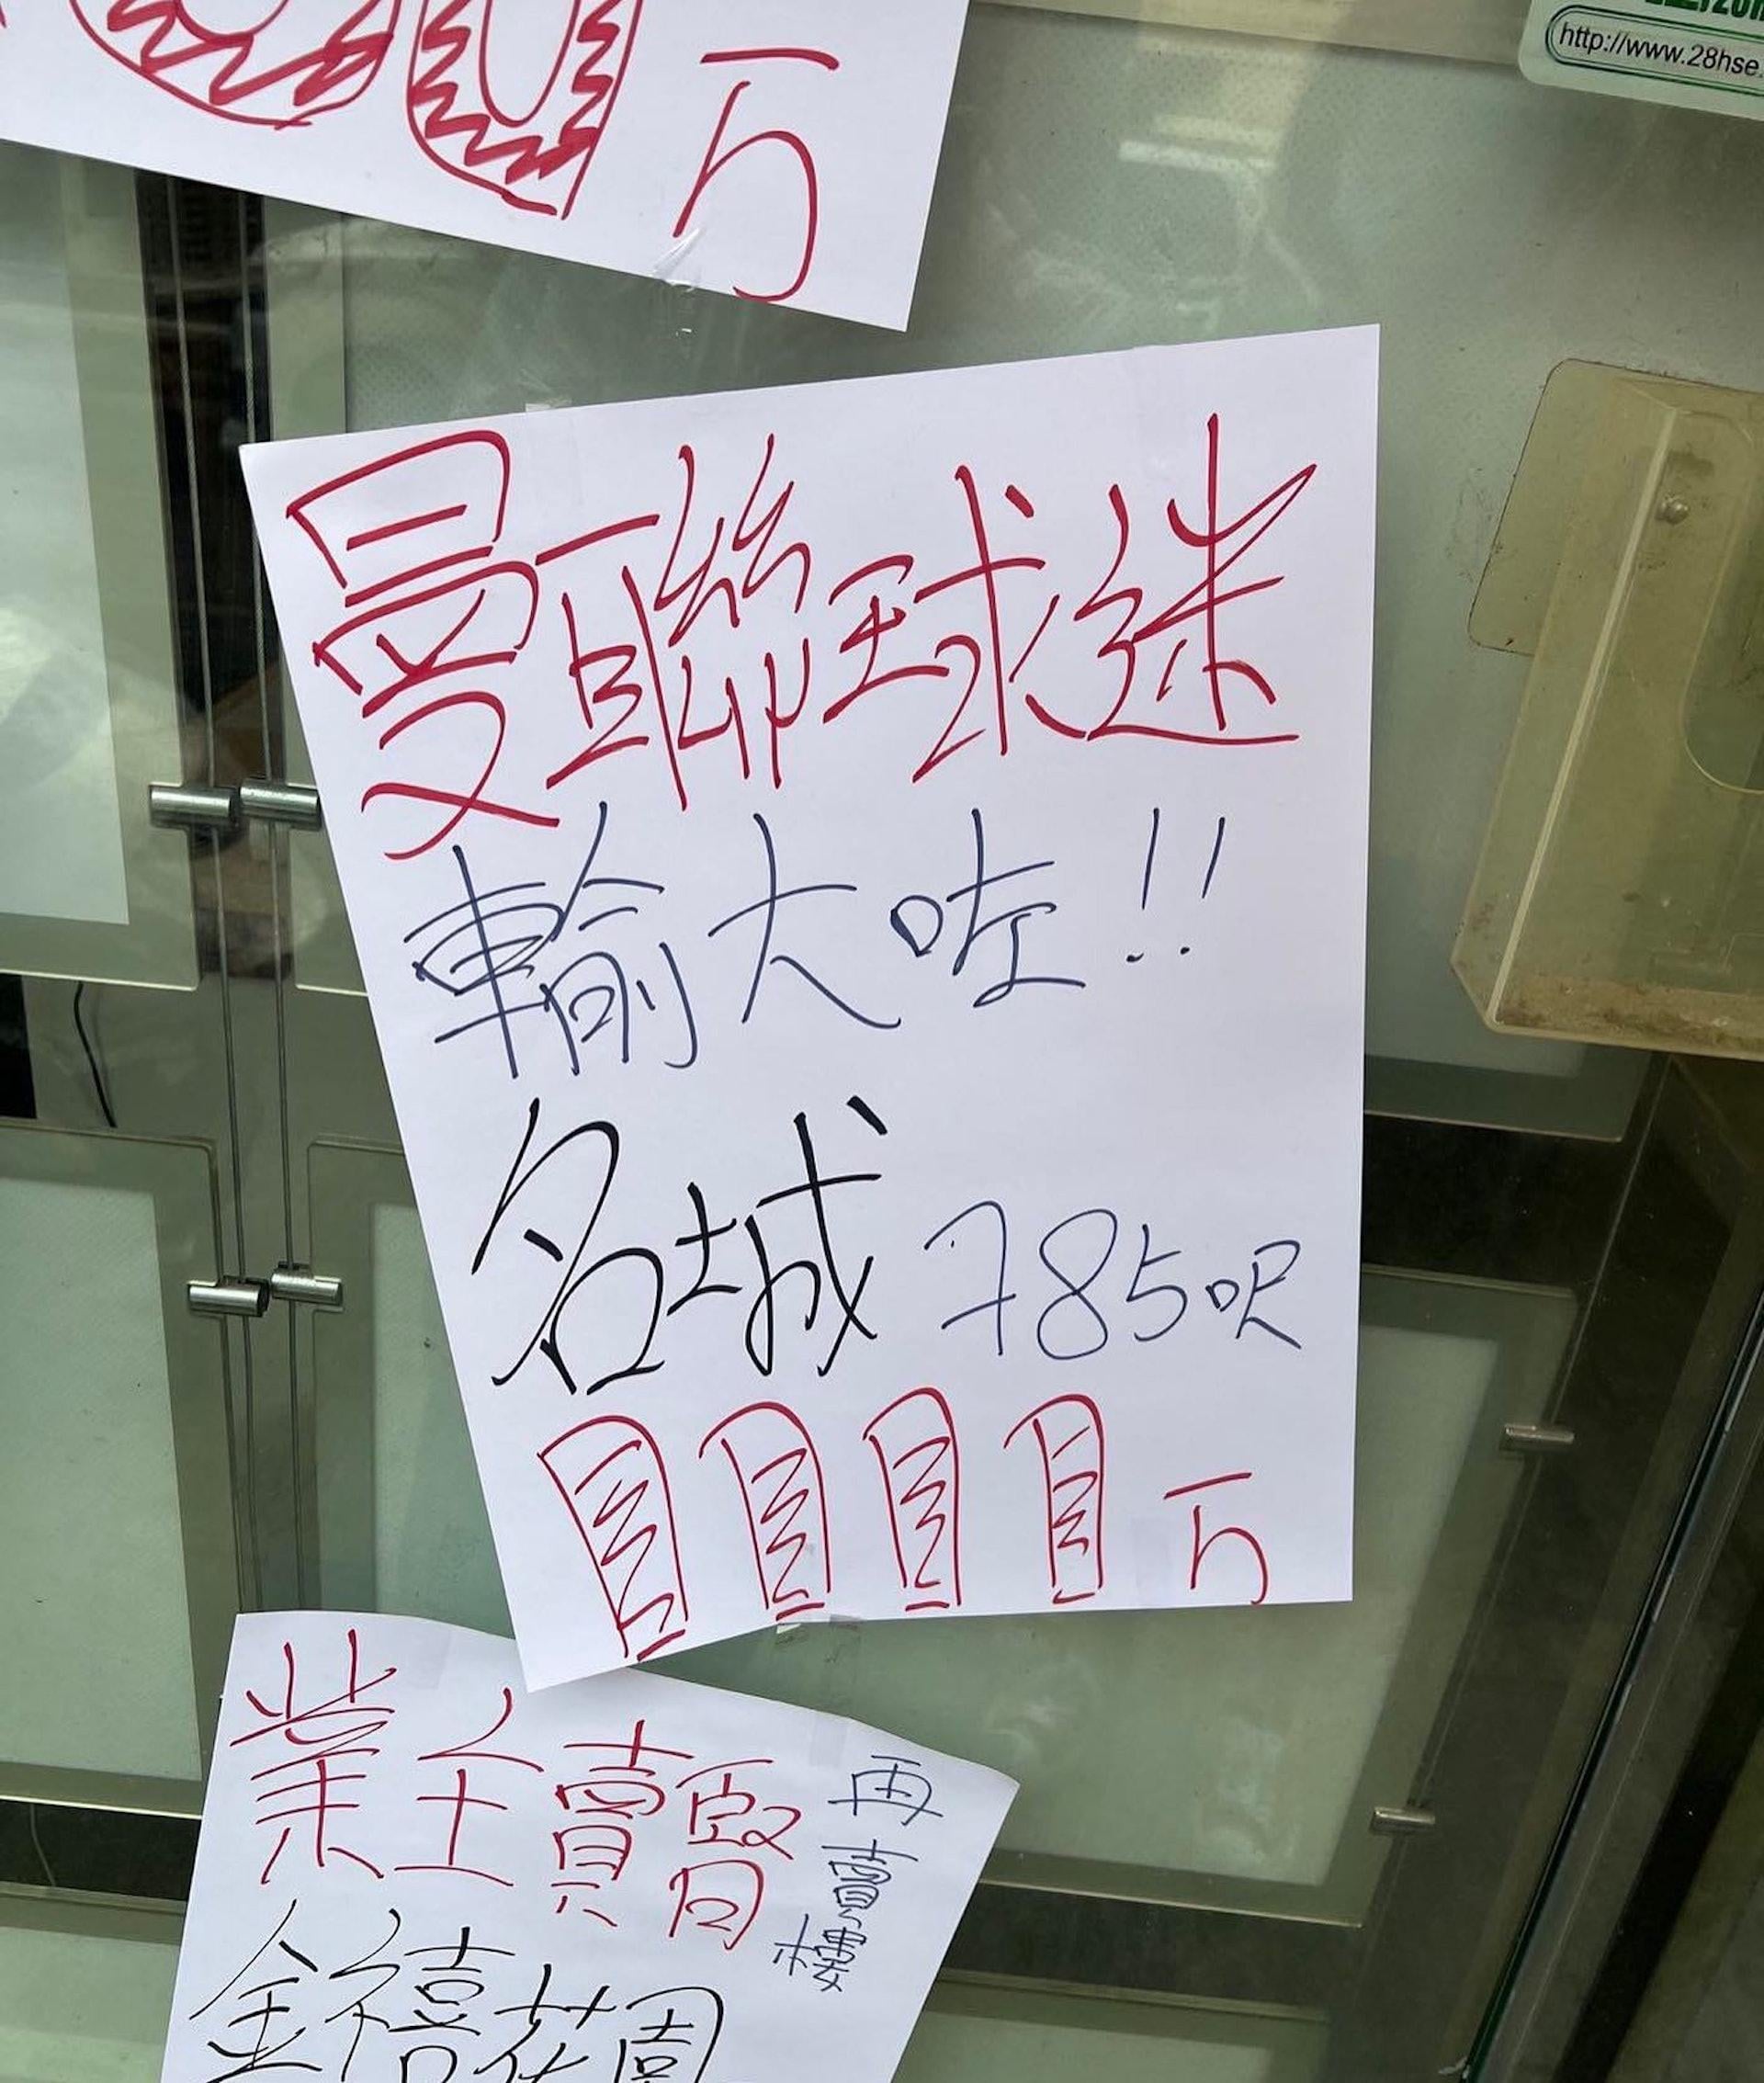 00万
http://www.28hse.
曼聯球迷
輸大咗!!
名城 785呎
1111万
業主賣腎
再賣樓
金禧花園